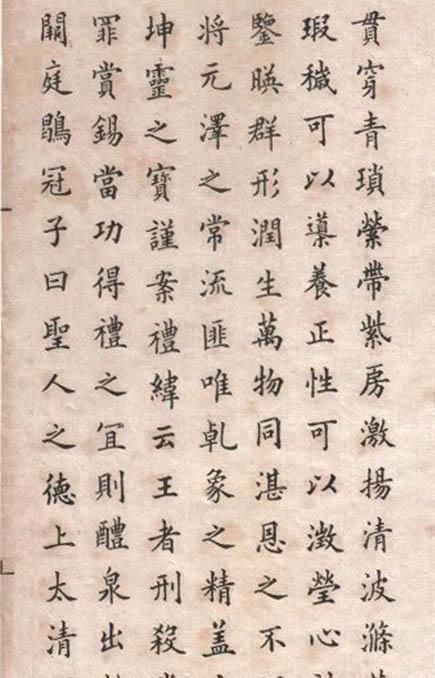 貫穿青瑣縈帶紫房激揚清波滌
瑕穢可以導養正性可以澂瑩心
鑒暎群形潤生萬物同湛恩之不
將元澤之常流匪唯乹象之精盖
坤靈之寶謹案禮緯云王者刑殺
罪賞錫當功得禮之冝則醴泉出
闕庭鶡冠子曰聖人之徳上太清